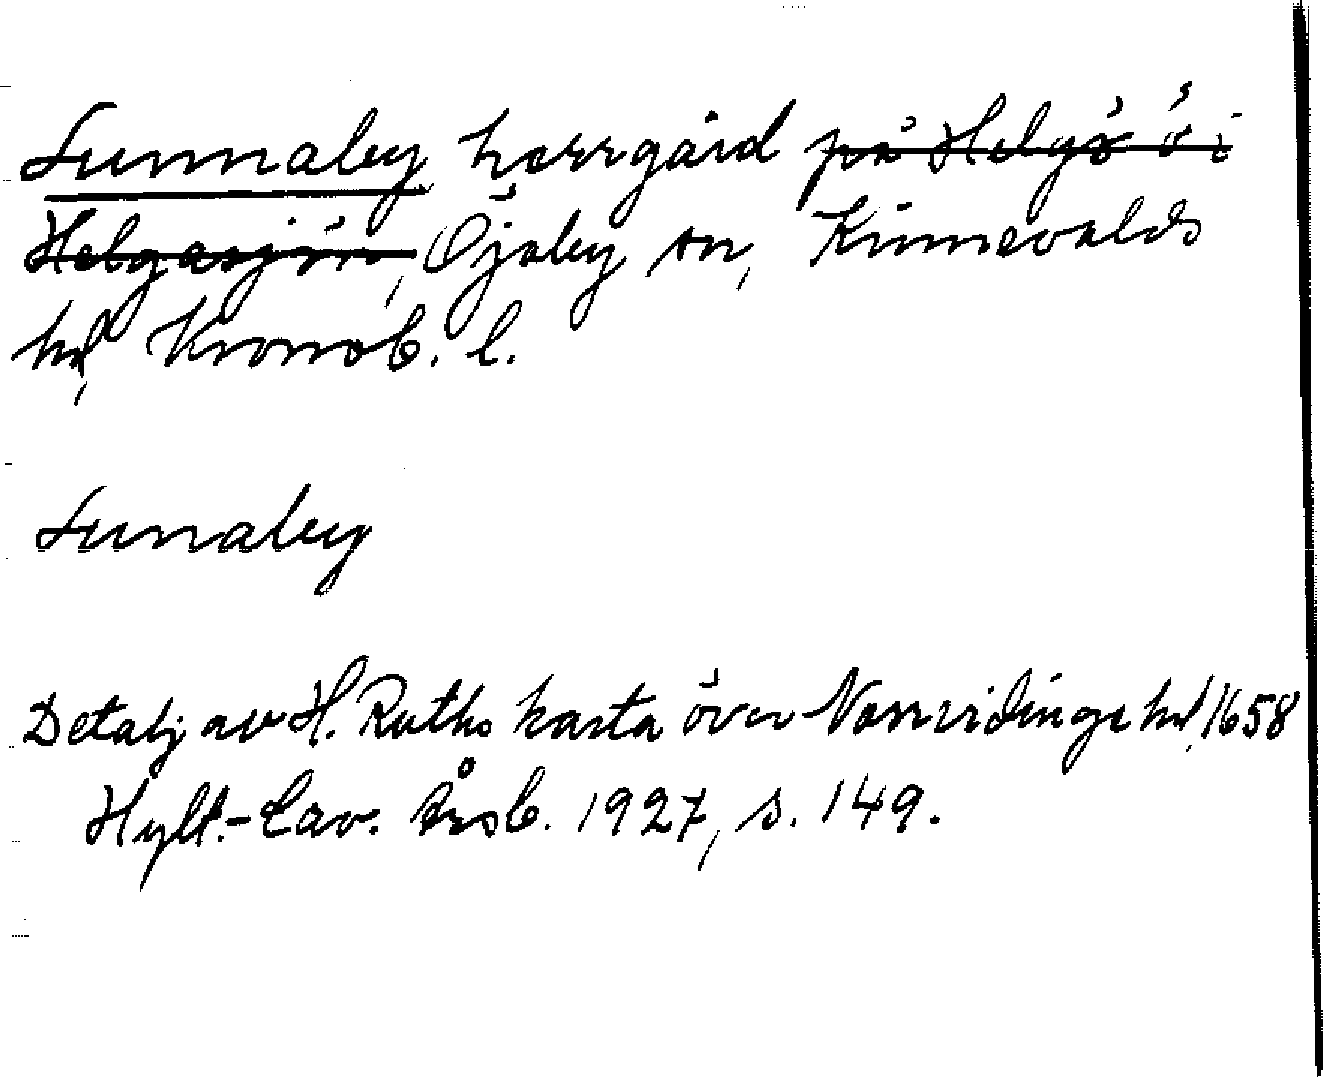 Sunnaby herrgård på Helgö ö i
Helgasjön, Öjaby sn, Kinnevalds
hd, Kronob. l.
Sunaby
Detalj av H. Ruths karta över Norrvidinge hd, 1658
Hylt.-Cav. årsb. 1927, s. 149.